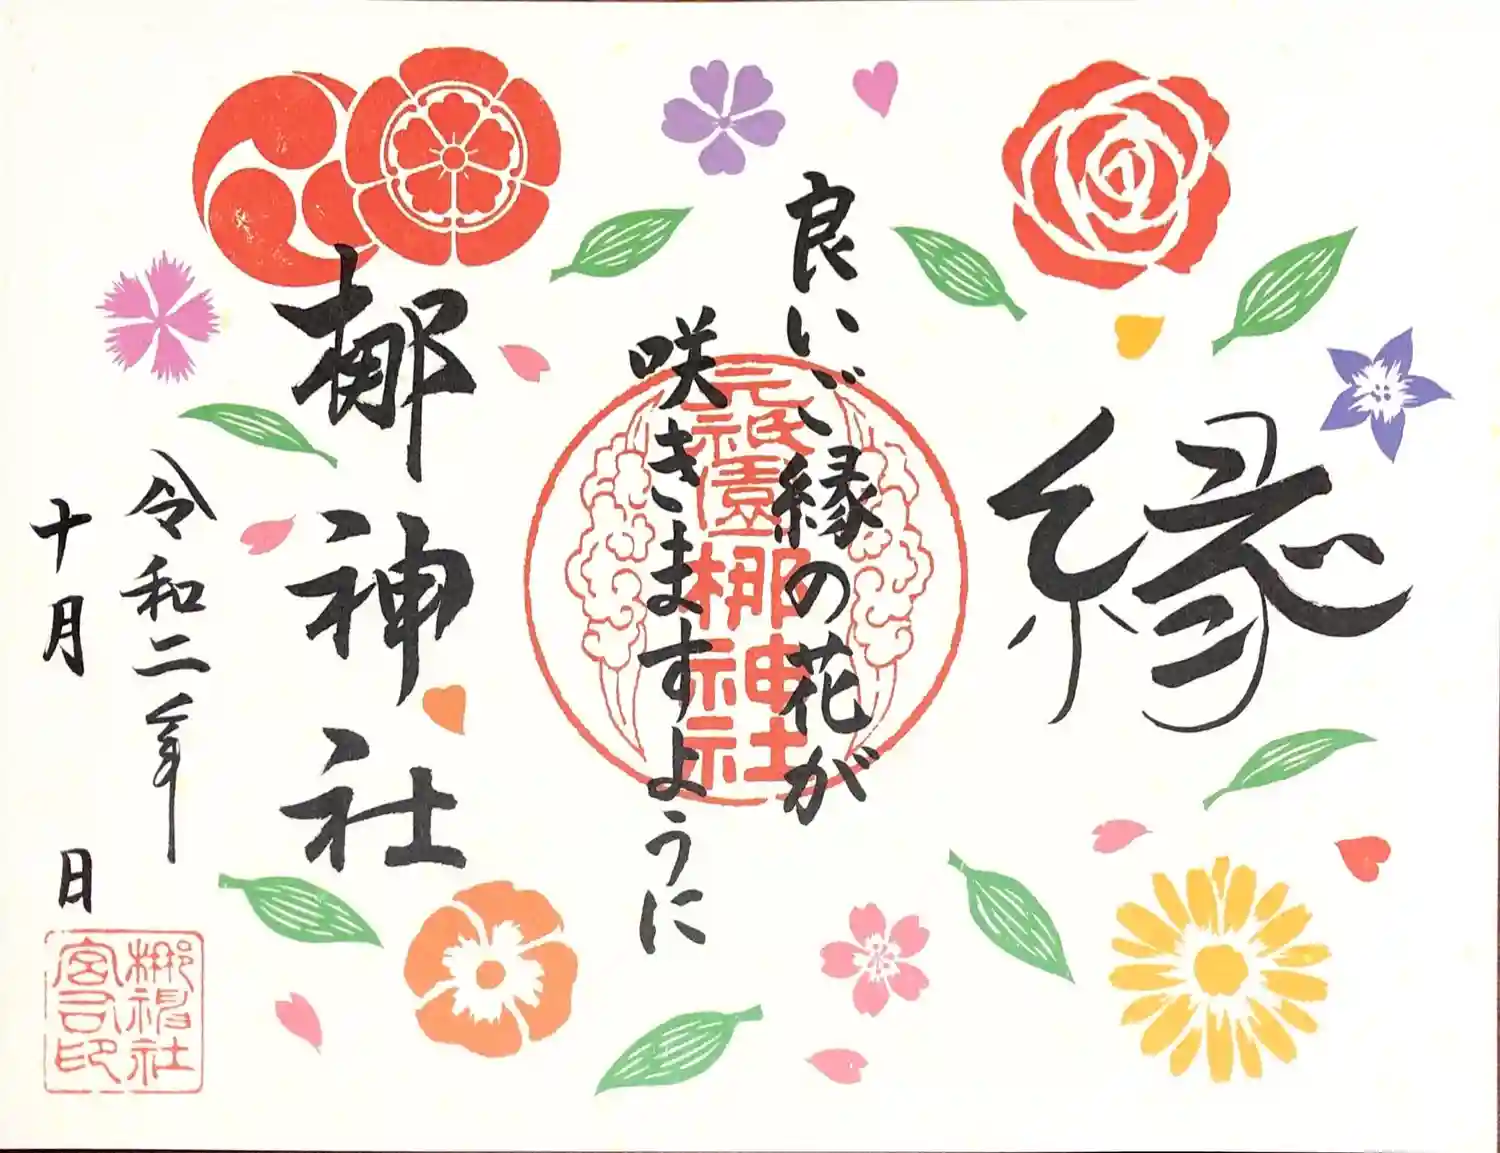 縁
良いご縁の花が
咲きますように
元祇園梛神社
梛神社
令和二年
十月　日
梛神社
宮司印